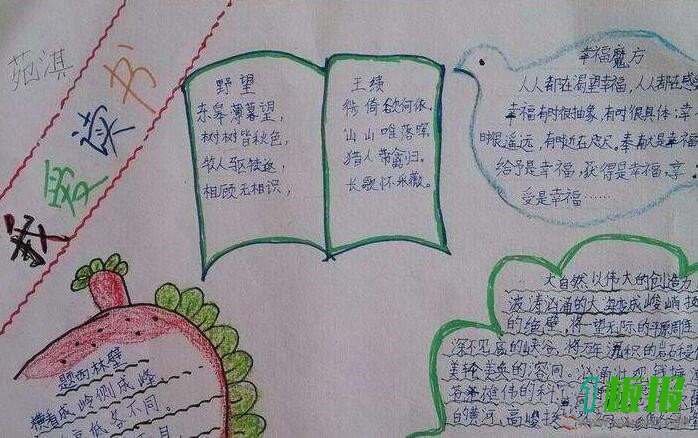 苑淇
我爱读书
野望
王绩
东皋薄暮望，
徙倚欲何依。
树树皆秋色，
山山唯落晖。
牧人驱犊返，
猎人带禽归。
相顾无相识，
长歌怀采薇。
幸福魔方
人人都在渴望幸福，人人都在感
幸福有时很抽象，有时很具体；幸
时很遥远，有时近在咫尺。奉献是幸福
给予是幸福，获得是幸福，享
受是幸福……
题西林壁
横看成岭侧成峰
高低各不同。
大自然以伟大的创造力
波涛汹涌的大
变成峻峭
的绝壁，将一望无际的平原
深不见底的峡谷，将
积的岩石
美轮美奂的溶洞。
雄伟的科
的黄河，高峻
板报